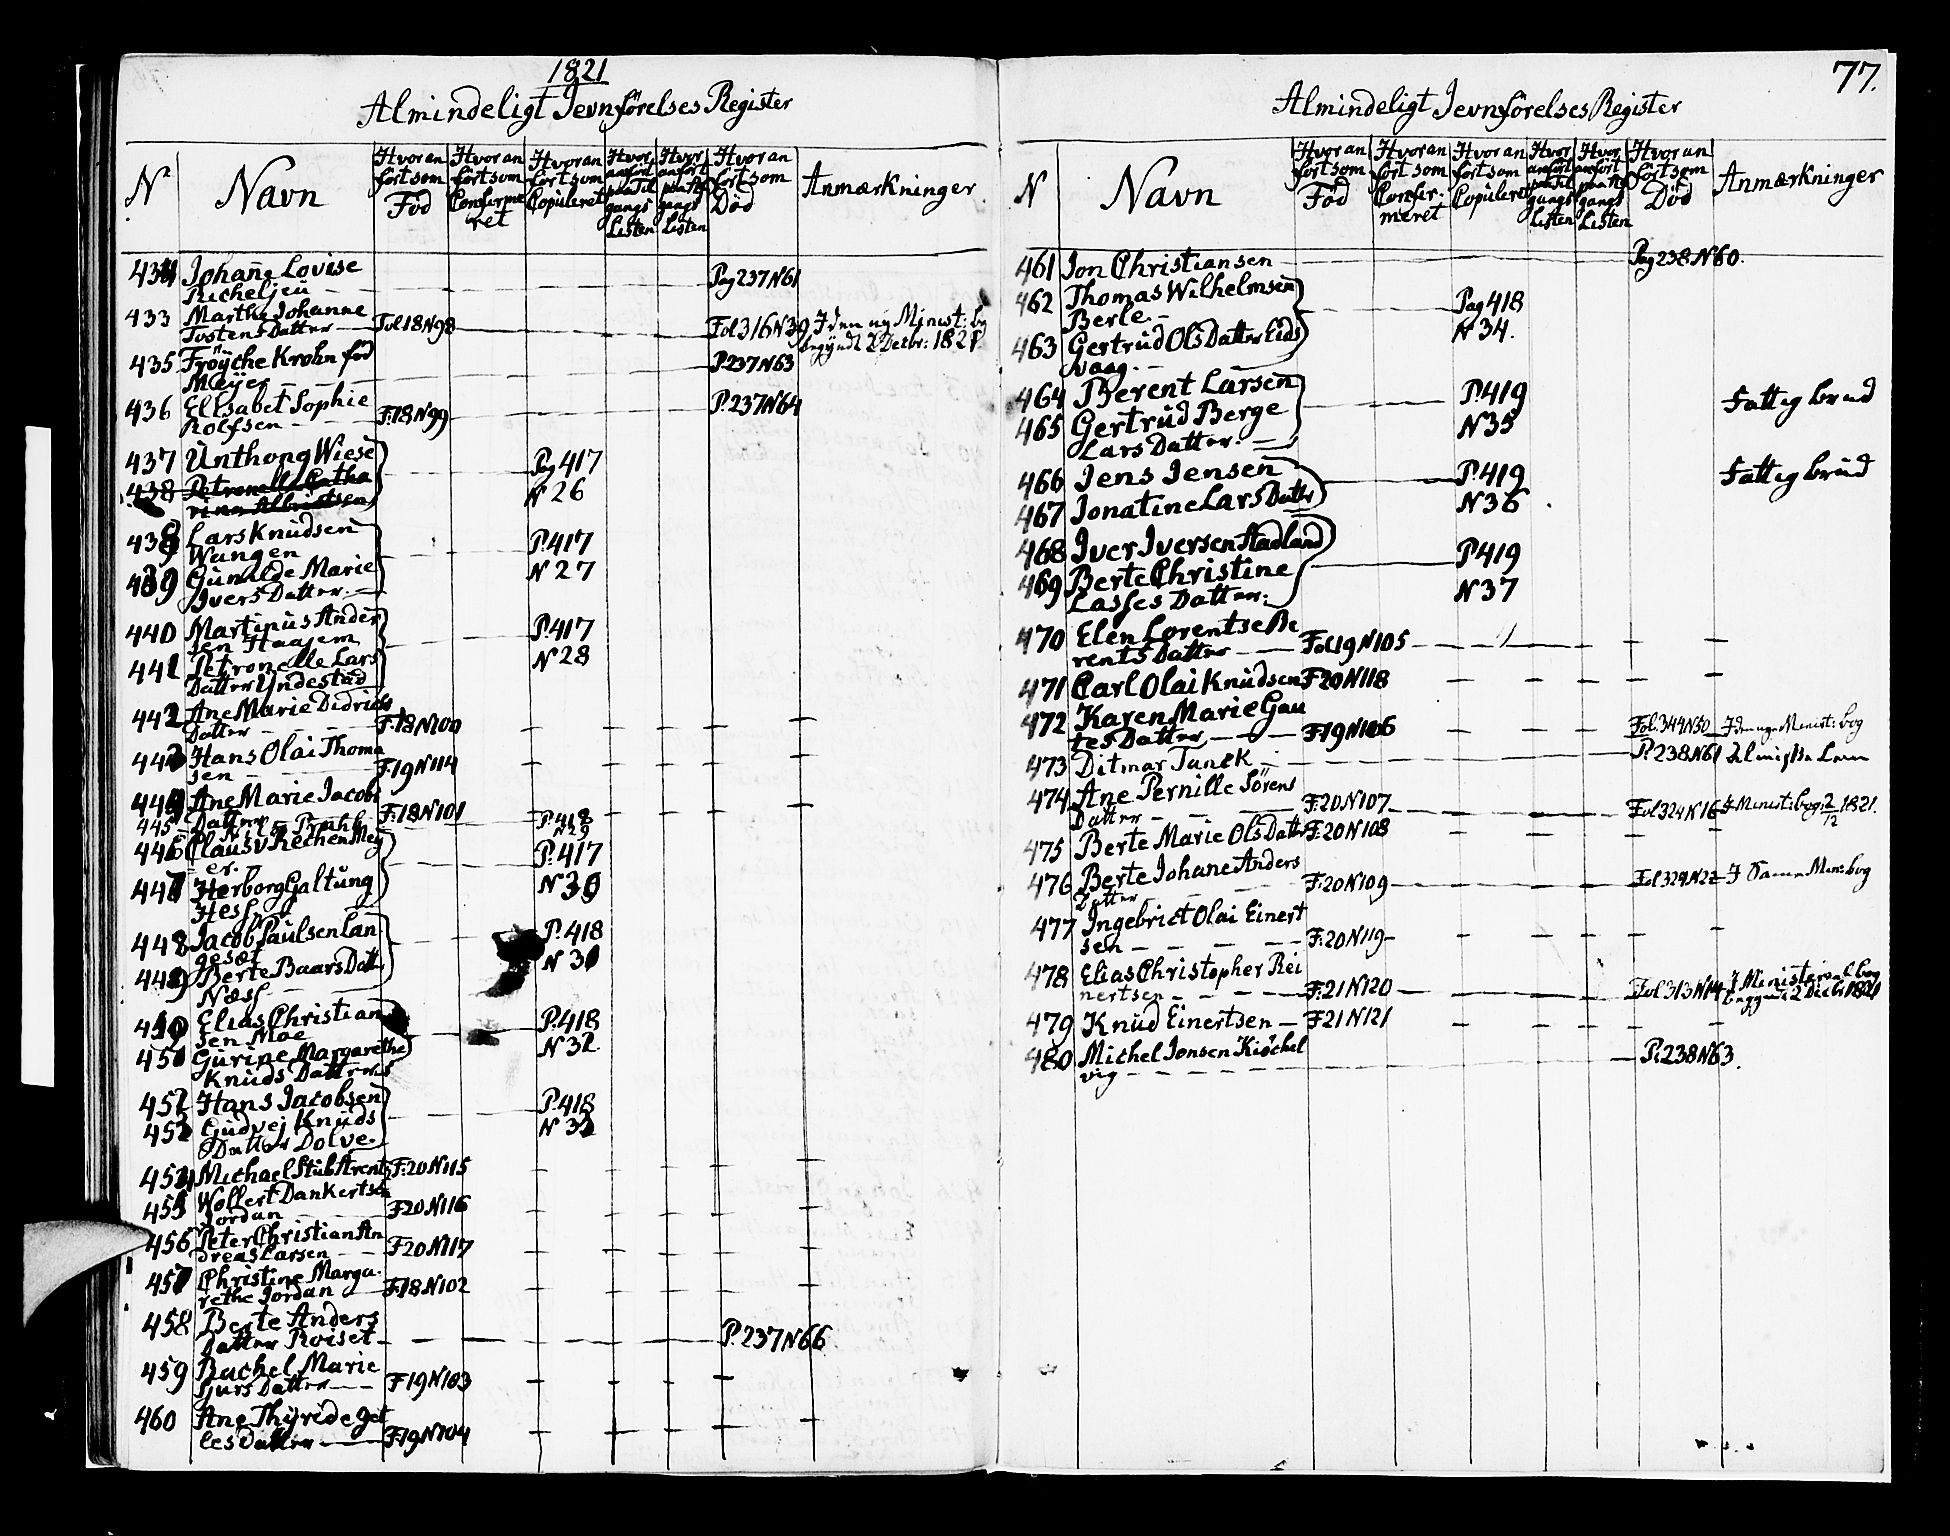 1821
Almindeligt Jevnförelses Register
N
Navn
Hvor an
fört som
Fød
Hvor an
fört som
Conferme
ret
Hvor an
fört som
Copuleret
Hvor
anfört
paa Til
gangs
Listen
Hvor
anfört
paa Af
gangs
Listen
Hvor an
fört som
Död
Anmærkninger
434 Johane Lovise
Richeljeu Pag 237 N 61
433 Marthe Johanne
Tostens Datter Fol 18 N 98 Fol 316 N 39 I den ny Minist: bog
begyndt 2 Decbr: 1821
435 Fröyche Krohn fød
Meyer P. 237 N 63
436 Elisabet Sophie
Rolfsen F: 18 N 99 P. 237 N 64
437 Unthong Wiese Pag 417
438 Petronelle Catha
rina Albrictsen N 26
438 Lars Knudsen
Wangen P. 417
439 Gunilde Marie
Ivers Datter N 27
440 Martinus Ander
sen Haasem P. 417
441 Petronelle Lars
Datter Undestad N 28
442 Ane Marie Didrichs
Datter F: 18 N 100
443 Hans Olai Thoma
sen F 19 N 114
444 Ane Marie Jacobs
Datter F: 18 N 101
445 P. 418
N 29
446 Claus v Rechen Mey
er. P. 417
447 Herborg Galtung
Hess N 30
448 Jacob Paulsen Lan
gesæt P. 418
449 Berte Baars Datt
Næss N 31
450 Elias Christian
sen Moe P. 418
451 Gurine Margarethe
Knuds Datter N 32
452 Hans Jacobsen P. 418
453 Gudvej Knuds
Datter Dolve N 33
454 Michael Stub Arents F: 20 N 115
455 Wollert Dankertsen
Jordan F 20 N 116
456 Peter Christian An
dreas Larsen F 20 N 117
457 Christine Marga
rethe Jordan F: 18 N 102
458 Berte Anders
Datter Roiset P. 237 N 66
459 Rachel Marie
Sjurs Datter F 19 N 103
460 Ane Thyride Get
les Datter F: 19 N 104
77.
Almindeligt Jevnförelses Register
N
Navn
Hvor an
fört som
Fød
Hvor an
fört som
Confer-
meret
Hvor an
fört som
Copuleret
Hvor
anfört
paa Til
gangs
Listen
Hvor
anfört
paa Af
gangs
Listen
Hvor an
fört som
Död
Anmærkninger
461 Jon Christiansen Pag 238 N 60.
462 Thomas Wilhelmsen
Berle Pag 418
463 Gertrud Ols Datter Eids
vaag. N 34.
464 Berent Larsen P. 419 Fattig brud
465 Gertrud Berge
Lars Datter. N 35
466 Jens Jensen P. 419 Fattig brud
467 Jonatine Lars Datter N 36
468 Iver Iversen Stadland P. 419
469 Berte Christine
Lasses Datter. N 37
470 Elen Lorentse Be
rents Datter Fol 19 N 105
471 Carl Olai Knudsen F 20 N 118
472 Karen Marie Gau
tes Datter F: 19 N 106 Fol. 344 N 30 I den nye Minist: bog
473 Ditmar Tanck P. 238 N 61
474 Ane Pernille Sörens
Datter F: 20 N 107 Fol 324 N 16 I Minist: bog: 2/12 1821.
475 Berte Marie Ols Datter F: 20 N 108
476 Berte Johane Anders
Datter F: 20 N 109 Fol 324 N 22 I Samme Min: bog
477 Ingebrict Olai Einert
sen F: 20 N 119
478 Elias Christopher Rei
nertsen F: 21 N 120 Fol 313 N 14 I Ministerial bog
begyndt 2 Decbr 1821
479 Knud Einertsen F 21 N 121
480 Michel Jonsen Kiöckel
vig P: 238 N 63.